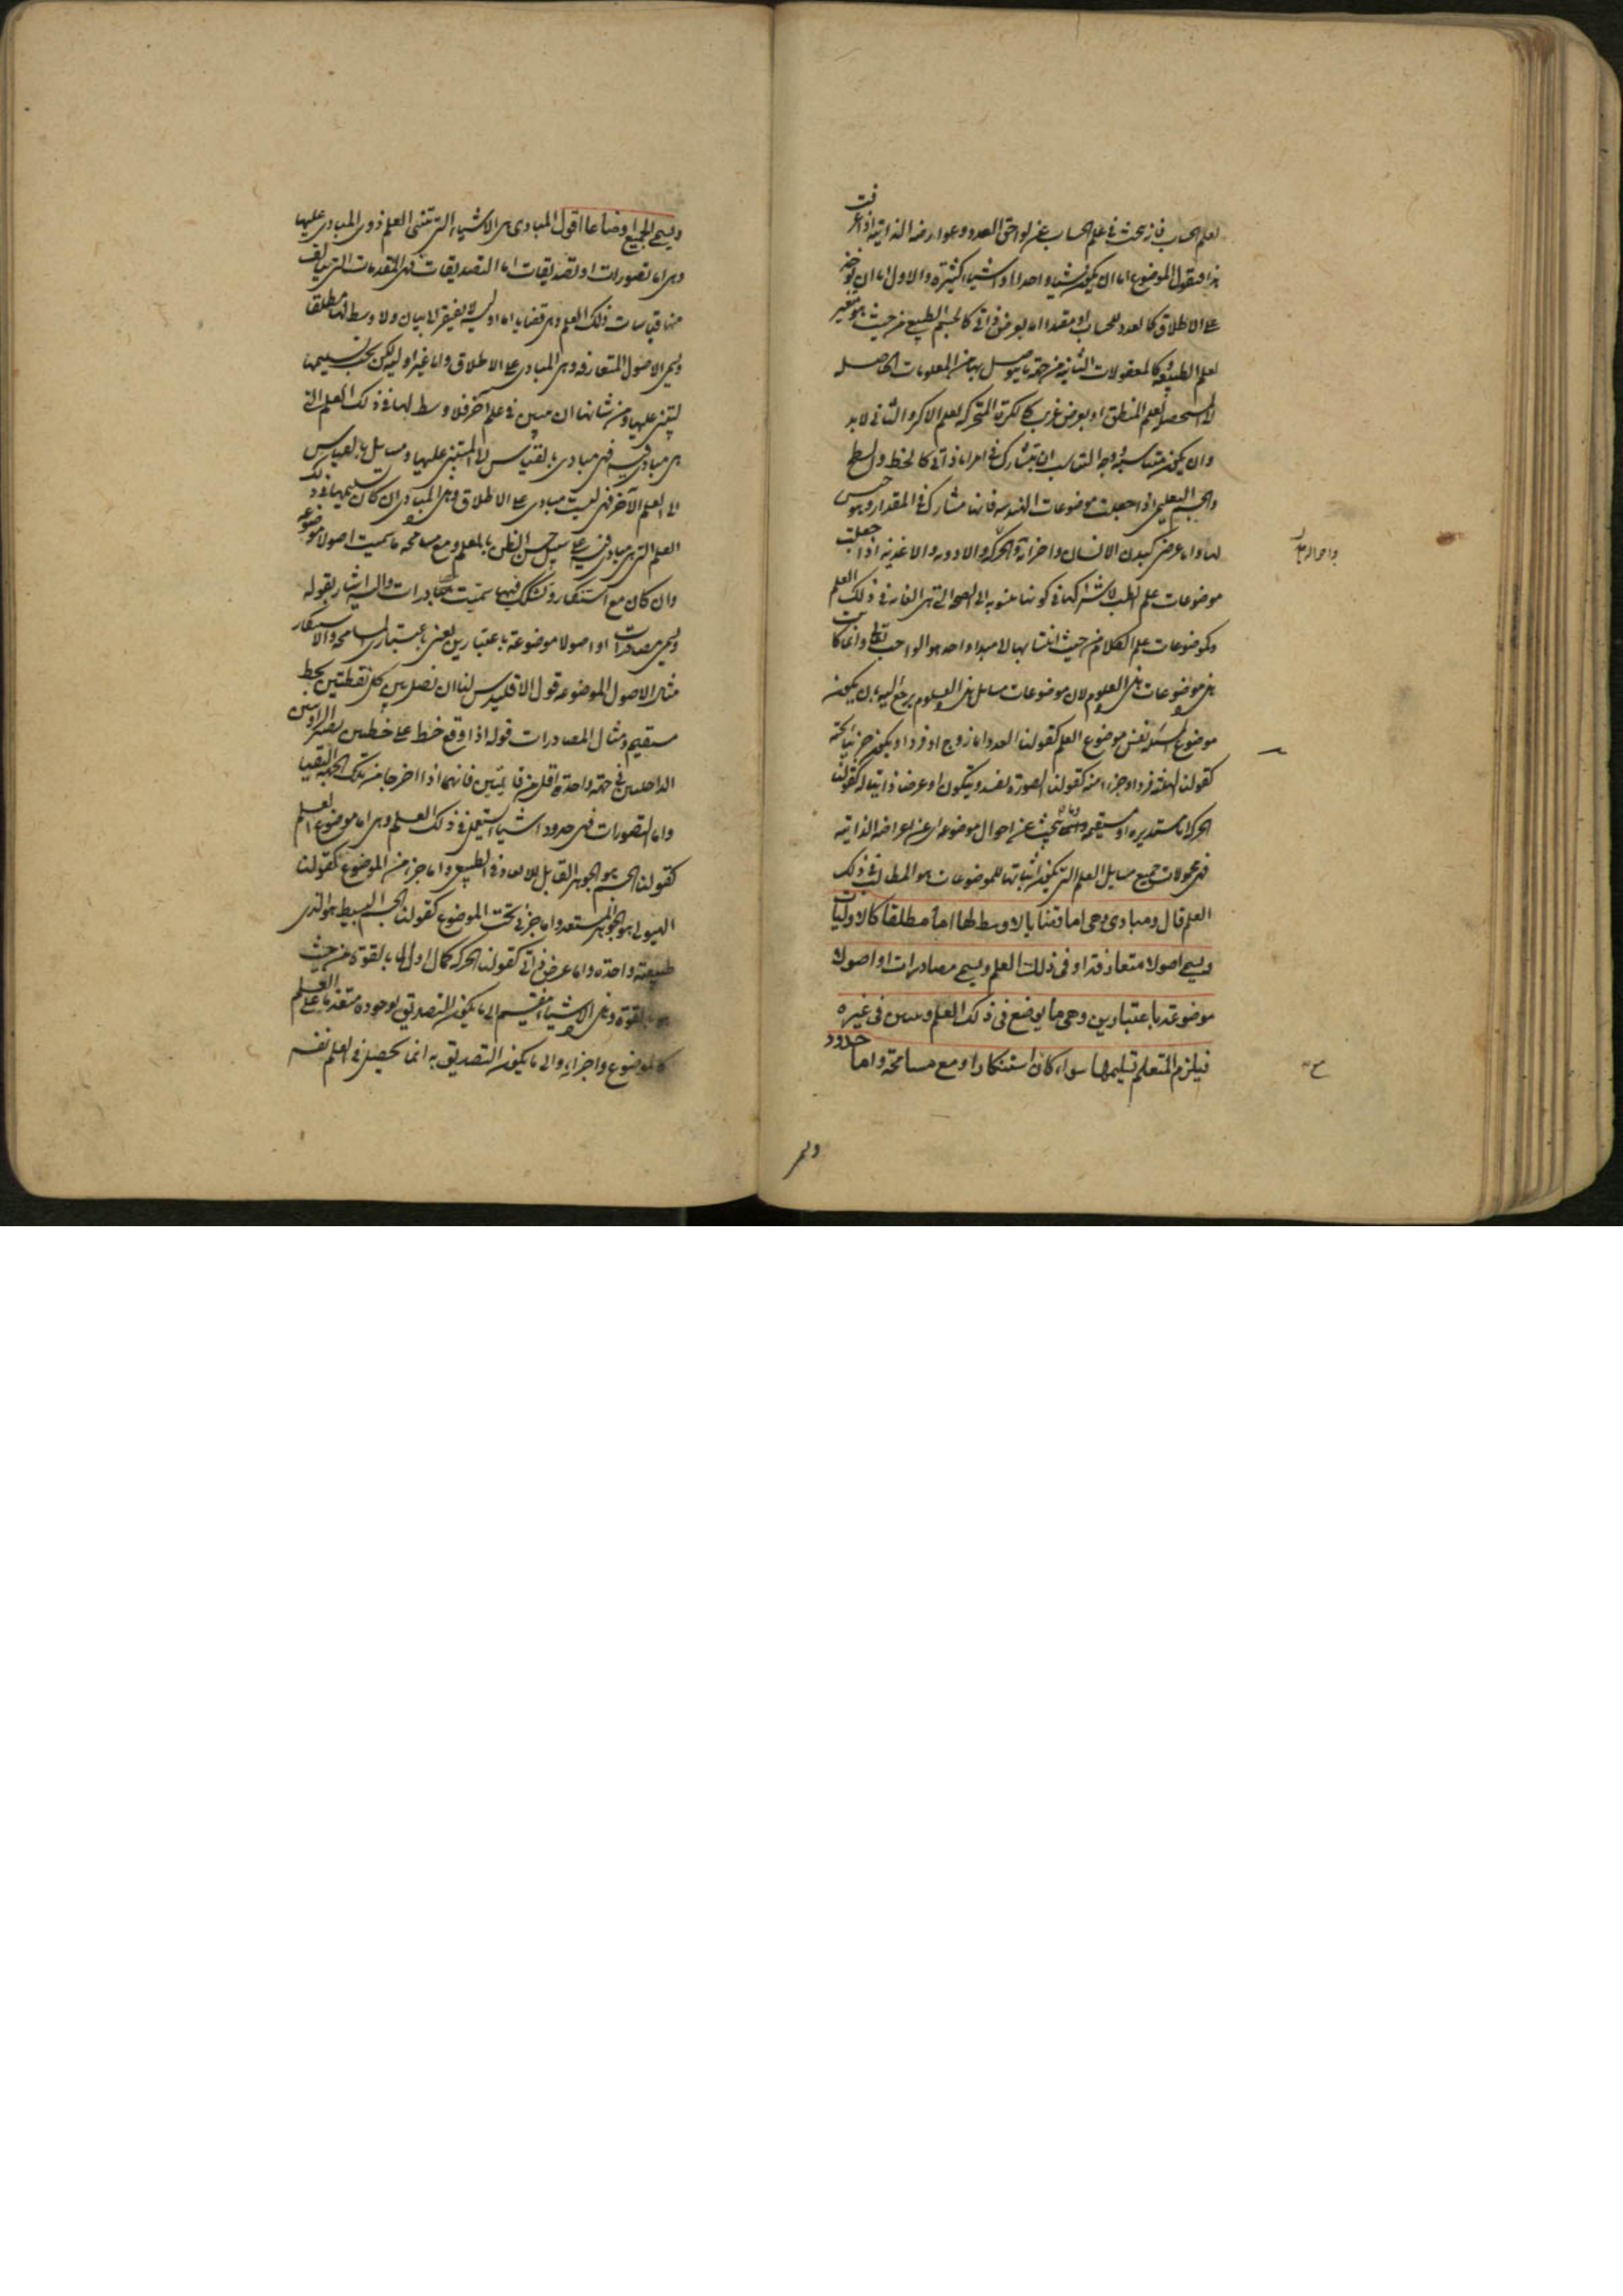 لعلم الحساب فانه يبحث في علم الحساب عن لواحق العدد وعوارضه الذاتية اذا عرفت
هذا فنقول الموضوع اما ان يكون شيئا واحدا او اشياء كثيرة والاول اما ان يوخذ
على الاطلاق كالعدد للحساب او مقيدا اما بعرض ذاتي كالجسم الطبيعي من حيث هو متغير
لعلم الطبيعة وكالمعقولات الثانية من جهة ما يتوصل بها من المعلومات الحاصلة
لعلم المنطق او بعرض غريب كالكرة المتحركة لعلم الاكر والثاني لا بد
وان يكون متناسبة ووجه التناسب ان يتشارك في امر اما ذاتي كالخط والسطح
والجسم التعليمي اذا جعلت موضوعات الهندسة فانها تشارك في المقدار وهو جنس
لها واما عرضي كبدن الانسان واجزائه والادوية والاغذية اذا جعلت
موضوعات علم الطب لاشتراكها في كونها منسوبة الى الصحة التي هي الغاية في ذلك العلم
وكموضوعات علم الكلام من حيث انتسابها الى مبدا واحد هو الواجب تعالى وانما كانت
هذه موضوعات هذه العلوم لان موضوعات مسائل هذه العلوم يرجع اليه بان يكون
موضوع المسئلة نفس موضوع العلم كقولنا العدد اما زوج او فرد او يكون جزئيا تحته
كقولنا الثلثة فرد او جزءا منه كقولنا الصورة تفسد وتتكون او عرضا ذاتيا له كقولنا
الحركة اما مستديرة او مستقيمة وانما يبحث عن احوال موضوعه اي عن اعراضه الذاتية
فهي محمولات جميع مسائل العلم التي يكون اثباتها للموضوعات هو المطالب في ذلك
العلم قال ومبادي وهي اما قضايا لا وسط لها اما مطلقا كالاوليات
ويسمى اصولا متعارفة او في ذلك العلم ويسمى مصادرات او اصولا
موضوعة باعتبارين وهي ما يوضع في ذلك العلم ويبين في غيره
فيلزم المتعلم تسليمها سواء كان استنكارا او مع مسامحة واما حدود
ويسمى الجميع اوضاعا اقول المبادي هي الاشياء التي تبتني العلم ذوي المبادي عليها
وهي اما تصورات او تصديقات اما التصديقات فهي المقدمات التي يتالف
منها قياسات ذلك العلم وهي قضايا اما اولية لا يفتقر الى بيان ولا وسط لها مطلقا
ويسمى الاصول المتعارفة وهي المبادي على الاطلاق واما غير اولية لكن يجب تسليمها
ليبتني عليها ومن شانها ان يتبين في علم اخر فلا وسط لها في ذلك العلم التي
هي مبادي فيه فهي مبادي بالقياس الى المبتني عليها ومسائل بالقياس
الى العلم الاخر فهي ليست مبادي على الاطلاق وهذه المبادي ان كان تسليمها في ذلك
العلم التي هي مبادي فيه على سبيل حسن الظن بالمعلم ومع مسامحة ما سميت اصولا موضوعة
وان كان مع استنكار وتشكك فيها سميت مصادرات واليه اشار بقوله
ويسمى مصادرات او اصولا موضوعة باعتبارين يعني باعتبار المسامحة والاستنكار
مثال الاصول الموضوعة قول اقليدس لنا ان نصل بين كل نقطتين بخط
مستقيم ومثال المصادرات قوله اذا وقع خط على خطين وصير الزاويتين
الداخلتين في جهة واحدة اقل من قائمتين فانهما اذا اخرجا من تلك الجهة التقيا
واما التصورات فهي حدود اشياء يستعمل في ذلك العلم وهي اما موضوع العلم
كقولنا الجسم هو الجوهر القابل للابعاد في الطبيعي واما جزء من الموضوع كقولنا
الهيولى هو الجوهر المستعد واما جزئي تحت الموضوع كقولنا الجسم البسيط هو الذي
طبيعته واحدة واما عرض ذاتي كقولنا الحركة كمال اول لما بالقوة من حيث
هو بالقوة وهذه الاشياء منقسم الى ما يكون التصديق بوجوده متقدما على العلم
كالموضوع واجزائه والى ما يكون التصديق به انما يحصل في العلم نفسه